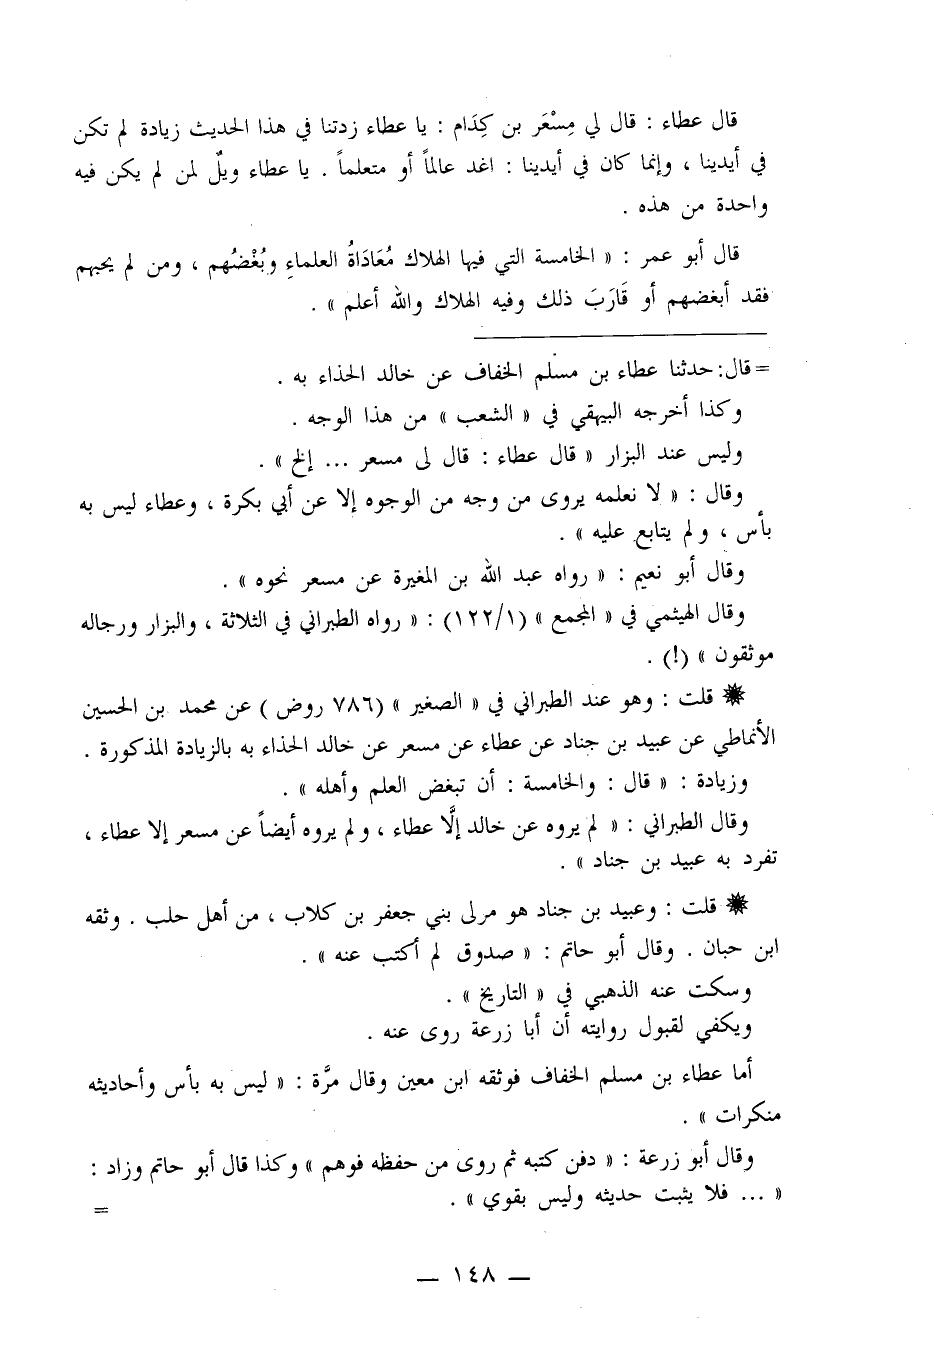 قال عطاء : قال لي مِسْعَر بن كِدَام : يا عطاء زدتنا في هذا الحديث زيادة لم تكن
في أيدينا ، وإنما كان في أيدينا : اغد عالماً أو متعلماً . يا عطاء ويلٌ لمن لم يكن فيه
واحدة من هذه .
قال أبو عمر : « الخامسة التي فيها الهلاك مُعَادَاةُ العلماءِ وبُغْضُهم ، ومن لم يحبهم
فقد أبغضهم أو قَارَبَ ذلك وفيه الهلاك والله أعلم » .
= قال: حدثنا عطاء بن مسلم الخفاف عن خالد الحذاء به .
وكذا أخرجه البيهقي في « الشعب » من هذا الوجه .
وليس عند البزار « قال عطاء : قال لى مسعر ... إلخ » .
وقال : « لا نعلمه يروى من وجه من الوجوه إلا عن أبي بكرة ، وعطاء ليس به
بأس ، ولم يتابع عليه » .
وقال أبو نعيم : « رواه عبد الله بن المغيرة عن مسعر نحوه » .
وقال الهيثمي في « المجمع » (١٢٢/١) : « رواه الطبراني في الثلاثة ، والبزار ورجاله
موثقون » (!) .
✹ قلت : وهو عند الطبراني في « الصغير » (٧٨٦ روض ) عن محمد بن الحسين
الأنماطي عن عبيد بن جناد عن عطاء عن مسعر عن خالد الحذاء به بالزيادة المذكورة .
وزيادة : « قال : والخامسة : أن تبغض العلم وأهله » .
وقال الطبراني : « لم يروه عن خالد إلَّا عطاء ، ولم يروه أيضاً عن مسعر إلا عطاء ،
تفرد به عبيد بن جناد » .
✹ قلت : وعبيد بن جناد هو مرلى بني جعفر بن كلاب ، من أهل حلب . وثقه
ابن حبان . وقال أبو حاتم : « صدوق لم أكتب عنه » .
وسكت عنه الذهبي في « التاريخ » .
ويكفي لقبول روايته أن أبا زرعة روى عنه .
أما عطاء بن مسلم الخفاف فوثقه ابن معين وقال مرَّة : « ليس به بأس وأحاديثه
منكرات » .
وقال أبو زرعة : « دفن كتبه ثم روى من حفظه فوهم » وكذا قال أبو حاتم وزاد :
« ... فلا يثبت حديثه وليس بقوي » .
=
— ١٤٨ —